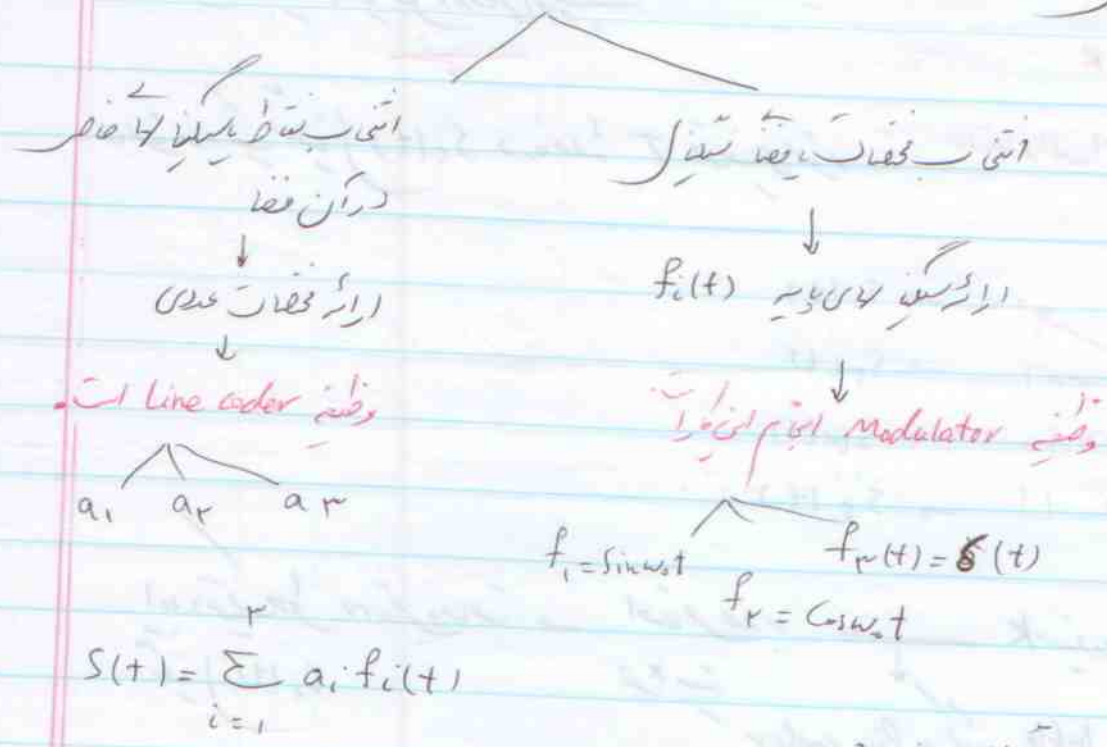 انتخاب مختصات یا فضا سیگنال
↓
ارائه سیگنال های پایه fᵢ(t)
↓
وظیفه Modulator انجام این کار است.
f₁ = Sinω₀t
f₂ = Cosω₀t
f₃(t) = δ(t)
انتخاب نقاط یا سیگنال های خاص
در آن فضا
↓
ارائه مختصات عددی
↓
وظیفه Line coder است.
a₁ a₂ a₃
S(t) = Σ aᵢ fᵢ(t)
i=1